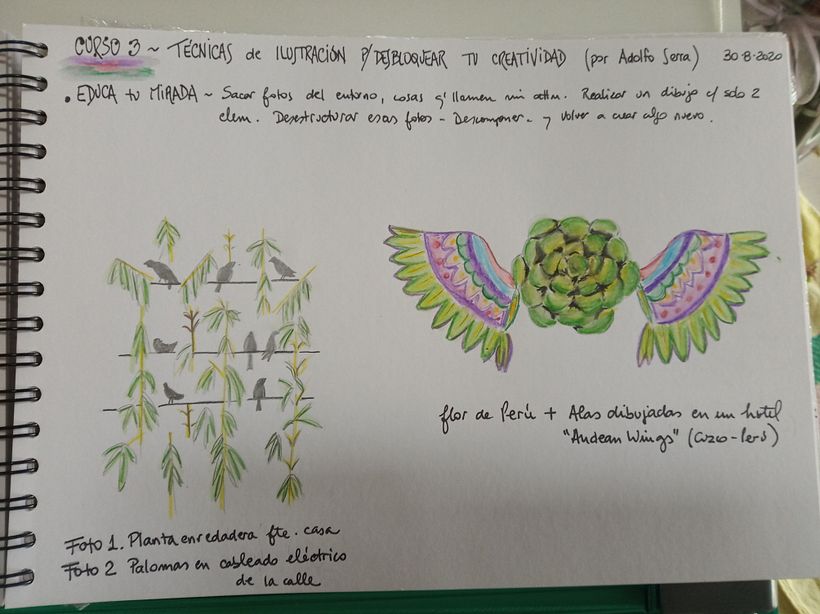 CURSO 3 ~ TÉCNICAS de ILUSTRACIÓN P/DESBLOQUEAR TU CREATIVIDAD (por Adolfo Serra) 30-8-2020
• EDUCA tu MIRADA ~ Sacar fotos del entorno, cosas q' llamen mi attn. Realizar un dibujo c/ solo 2
elem. Desestructurar esas fotos - Descomponer - y volver a crear algo nuevo.
flor de Perú + Alas dibujadas en un hotel
"Andean Wings" (Cuzco-Perú)
Foto 1. Planta enredadera fte. casa
Foto 2 Palomas en cableado eléctrico
de la calle